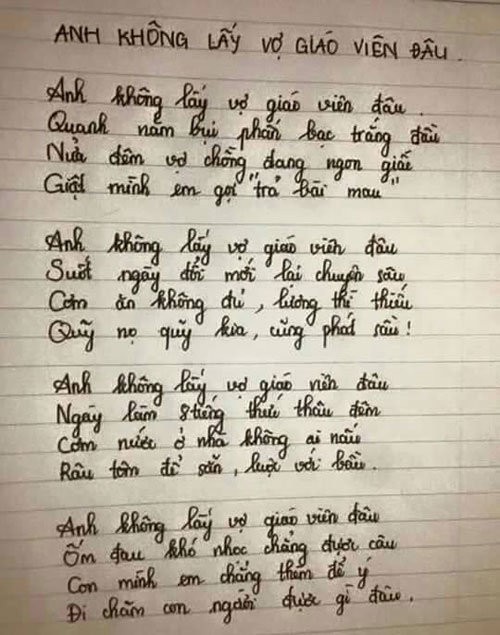 ANH KHÔNG LẤY VỢ GIÁO VIÊN ĐÂU.
Anh không lấy vợ giáo viên đâu.
Quanh năm bụi phấn bạc trắng đầu
Nửa đêm vợ chồng đang ngon giấc
Giật mình em gọi "trả bài mau"
Anh không lấy vợ giáo viên đâu
Suốt ngày đổi mới lại chuyên sâu
Cơm ăn không đủ, lương thì thiếu
Quỹ nọ quỹ kia, cũng phát sầu!
Anh không lấy vợ giáo viên đâu
Ngày làm 8 tiếng thức thâu đêm
Cơm nước ở nhà không ai nấu
Râu tôm để sẵn, luộc với bầu.
Anh không lấy vợ giáo viên đâu
Ốm đau khó nhọc chẳng được câu
Con mình em chẳng thèm để ý
Đi chăm con người được gì đâu.